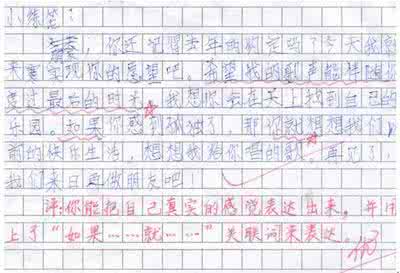 小练笔：
，你还记得去年的约定吗？今天我就
来实现你的愿望吧。希望我的歌声能伴随你
度过最后的时光。我想你会在天上找到自己的
乐园。如果你感到孤独了，那你就想想我们以
前的快乐生活，想想我给你唱的歌。再见了，
我们来日再做朋友吧！
评：你能把自己真实的感觉表达出来，并用
上了“如果……就……”关联词来表达。优